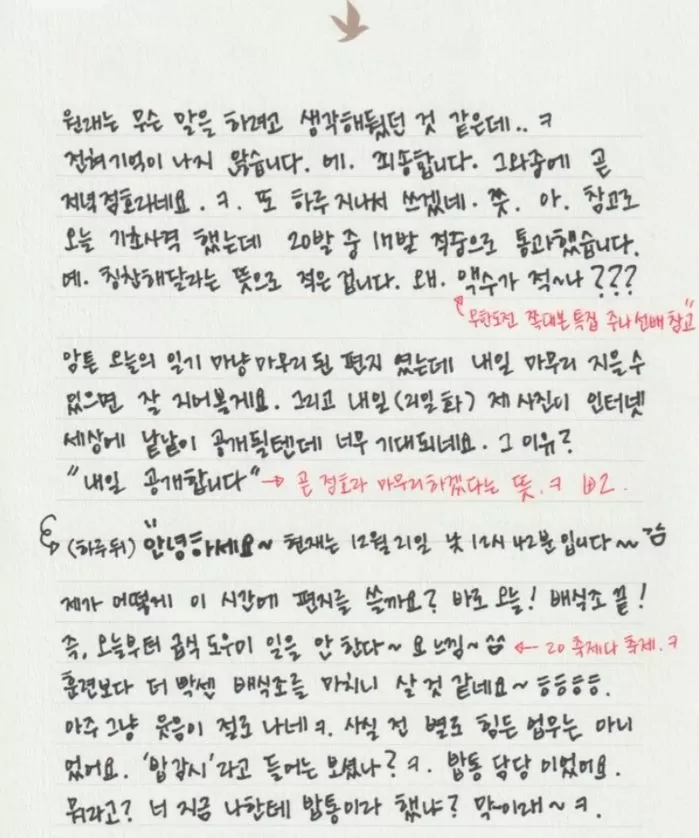 원래는 무슨 말을 하려고 생각해뒀던 것 같은데.. ㅋ
전혀 기억이 나지 않습니다. 예. 죄송합니다. 그 와중에 곧
저녁점호라네요. ㅋ. 또 하루 지나서 쓰겠네. 쯧. 아. 참고로
오늘 기초사격 했는데 20발 중 17발 적중으로 통과했습니다.
예. 칭찬해달라는 뜻으로 적은 겁니다. 왜. 액수가 적~나???
"무한도전 쪽대본 특집 주나 선배 참고"
암튼 오늘의 일기 마냥 마무리 된 편지 였는데 내일 마무리 지을 수
있으면 잘 지어볼게요. 그리고 내일(21일 화) 제 사진이 인터넷
세상에 낱낱이 공개될텐데 너무 기대되네요. 그 이유?
"내일 공개합니다" → 곧 점호라 마무리하겠다는 뜻.ㅋ
(하루뒤) "안녕하세요~ 현재는 12월 21일 낮 12시 42분입니다~ ^^
제가 어떻게 이 시간에 편지를 쓸까요? 바로 오늘! 배식조 끝!
즉, 오늘부터 급식 도우미 일을 안 한다~ 요 느낌~ ^^ ← 20 축제다 축제.ㅋ
훈련보다 더 빡센 배식조를 마치니 살 것 같네요~ ㅎㅎㅎㅎ.
아주 그냥 웃음이 절로 나네ㅋ. 사실 전 별로 힘든 업무는 아니
었어요. '밥감시'라고 들어는 보셨나?ㅋ. 밥통 담당 이었어요.
뭐라고? 너 지금 나한테 밥통이라 했냐? 막이래~ㅋ.